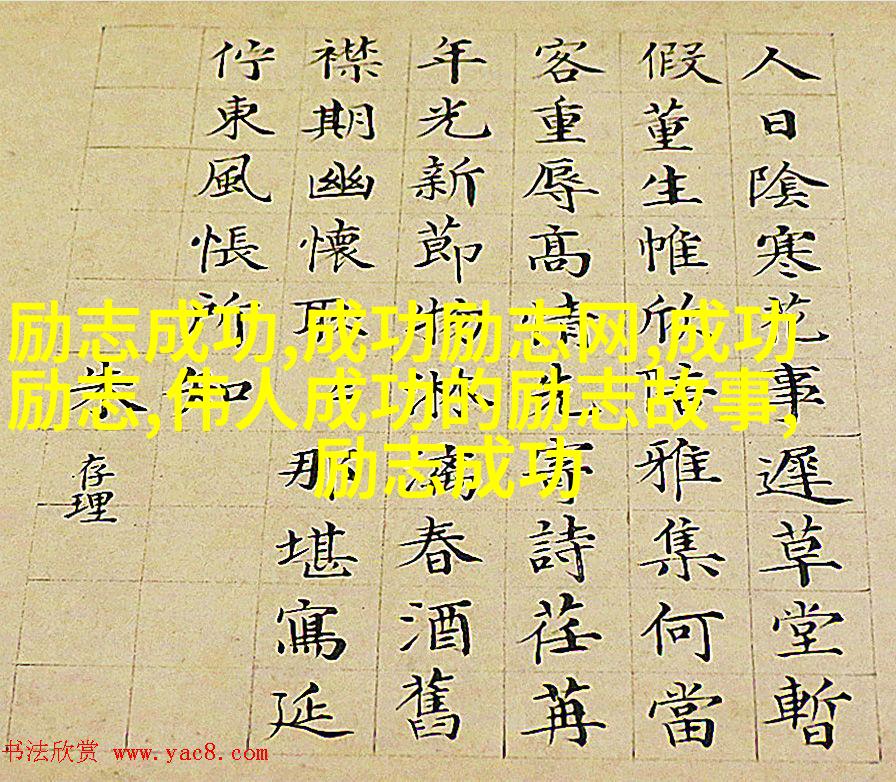 人日陰寒花事遲草堂暫
假董生帷欣陪雅集何當
客重辱高情先寄詩荏苒
年光新節物淋漓春酒舊
襟期幽懷取那堪寫延
佇東風悵所知
朱
存理
励志成功,成功励志网,成功
励志,伟人成功的励志故事,
励志成功
书法欣赏 www.yac8.com